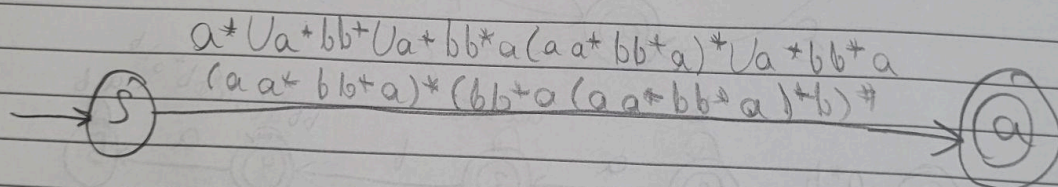 a*Ua*bb*Ua*bb*a(aa*bb*a)*Ua*bb*a
(aa*bb*a)*(bb*a(aa*bb*a)*b)*
S a